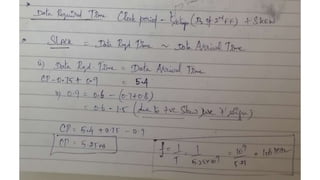 Data Required Time Clock period - Setup (D of 2nd FF) + SKEW
* SLACK = Data Reqd Time ~ Data Arrival Time
i) Data Reqd Time = Data Arrival Time
CP - 0.75 + 0.9 = 5.4
0.9 = 0.6 - (0.7+0.8)
= 0.6 - 1.5 (due to +ve Skew
CP = 5.4 + 0.75 - 0.9
CP = 5.25 ns
f = 1/T = 1/5.25×10⁻⁹ = 10⁹/5.25